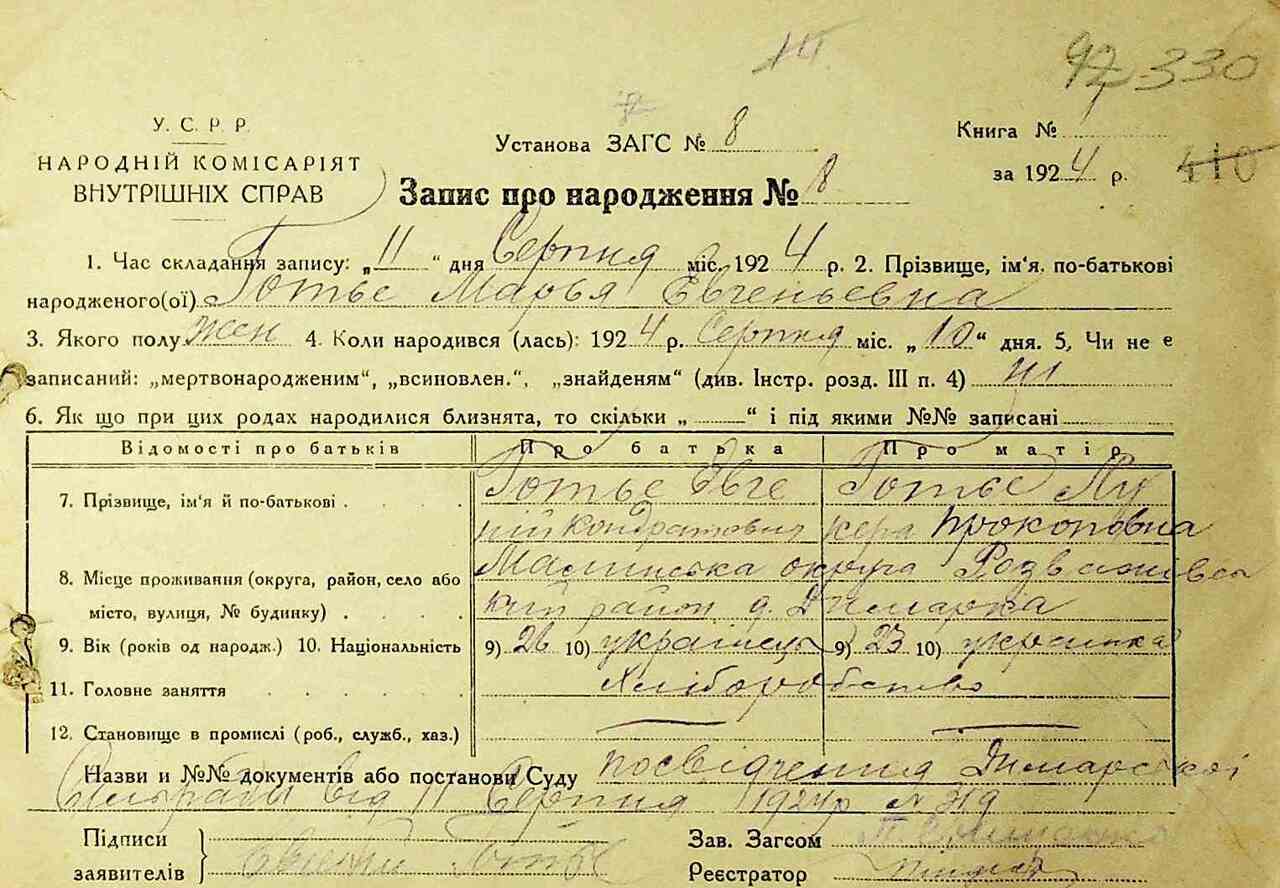 97 330
У. С. Р. Р.
НАРОДНІЙ КОМІСАРІЯТ
ВНУТРІШНІХ СПРАВ
Установа ЗАГС № 8
Запис про народження № 8
Книга №
за 1924 р.
410
1. Час складання запису: „11“ дня Серпня міс. 1924 р. 2. Прізвище, ім‘я, по-батькові
народженого(ої) Готье Марья Евгеньевна
3. Якого полу жен 4. Коли народився (лась): 1924 р. Серпня міс. „10“ дня. 5, Чи не є
записаний: „мертвонародженим“, „всиновлен.“, „знайденям“ (див. Інстр. розд. III п. 4) ні
6. Як що при цих родах народилися близнята, то скільки „ “ і під якими №№ записані
Відомості про батьків Про батька Про матір
7. Прізвище, ім‘я й по-батькові Готье Євге Готье
ній Кондратович Прокоповна
8. Місце проживання (округа, район, село або округа
місто, вулиця, № будинку) район
9. Вік (років од народж.) 10. Національність 9) 26 10) українець 9) 23 10) українка
11. Головне заняття Хліборобство
12. Становище в промислі (роб., служб., хаз.)
Назви и №№ документів або постанови Суду посвідчення Димарської
Сільради від 11 Серпня 1924р № 319
Підписи
заявителів
Зав. Загсом
Реєстратор